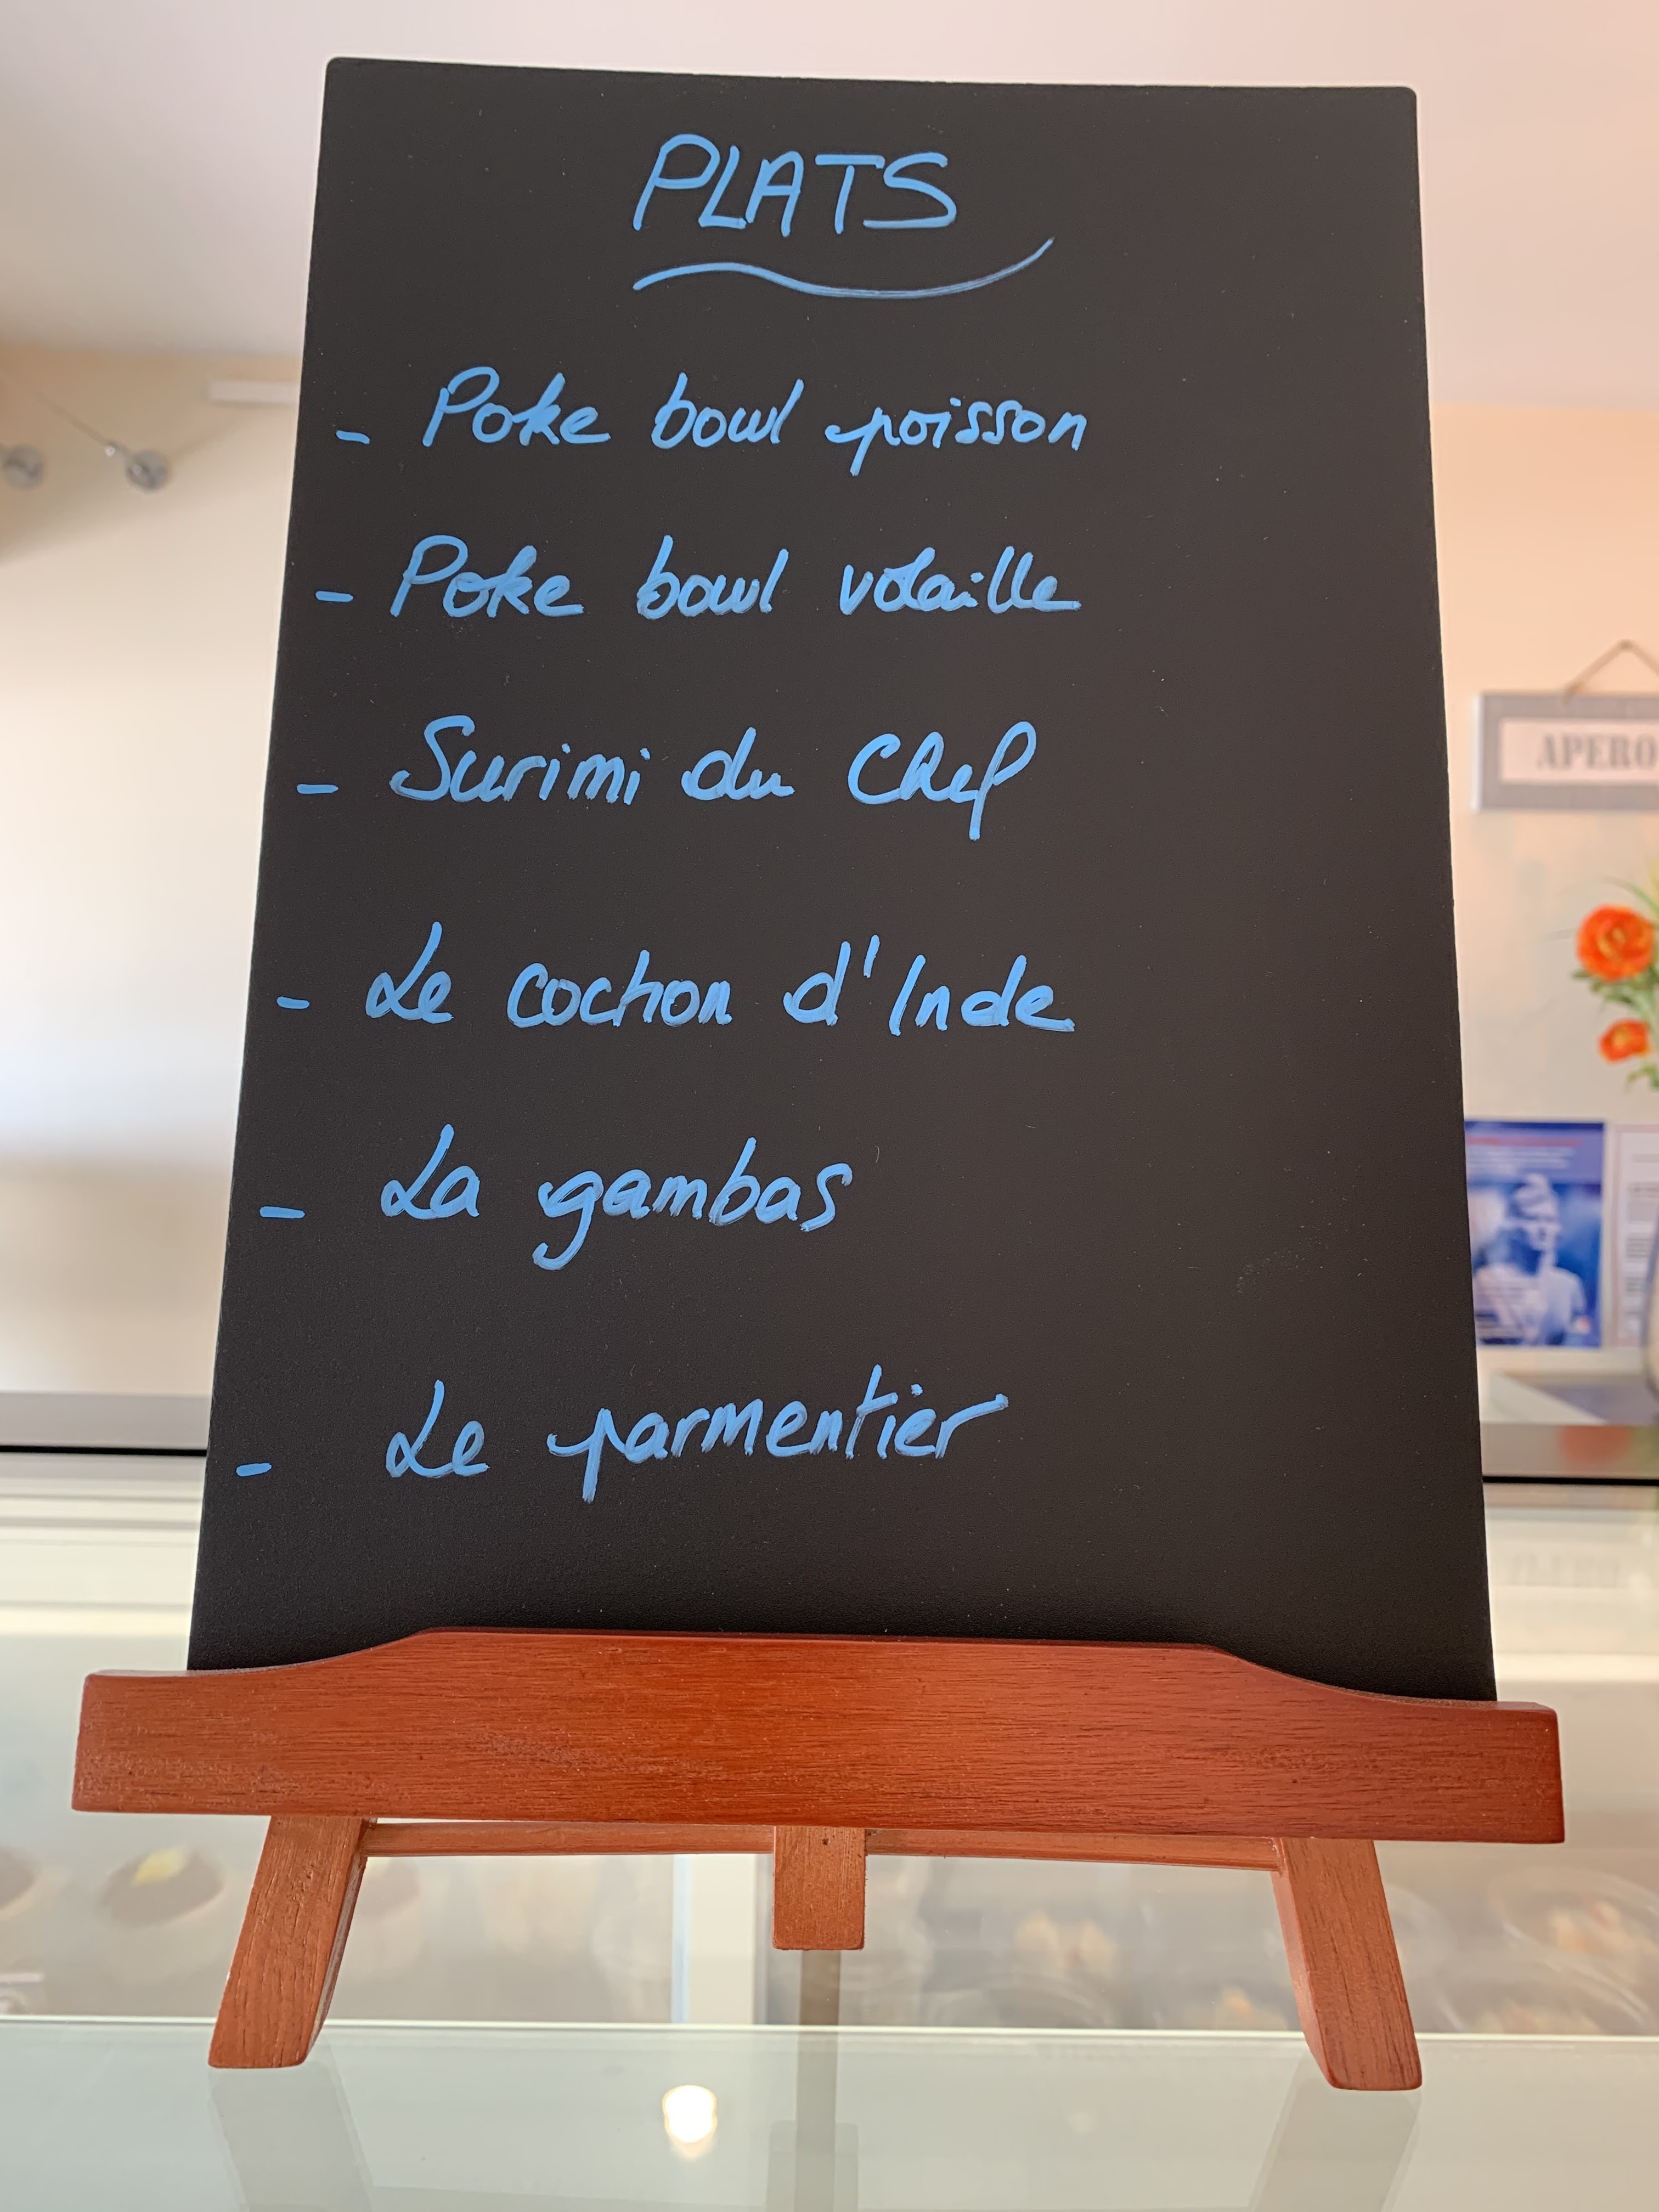 PLATS
- Poke bowl poisson
- Poke bowl volaille
- Surimi du Chef
- Le cochon d'Inde
- La gambas
- Le parmentier
APERO